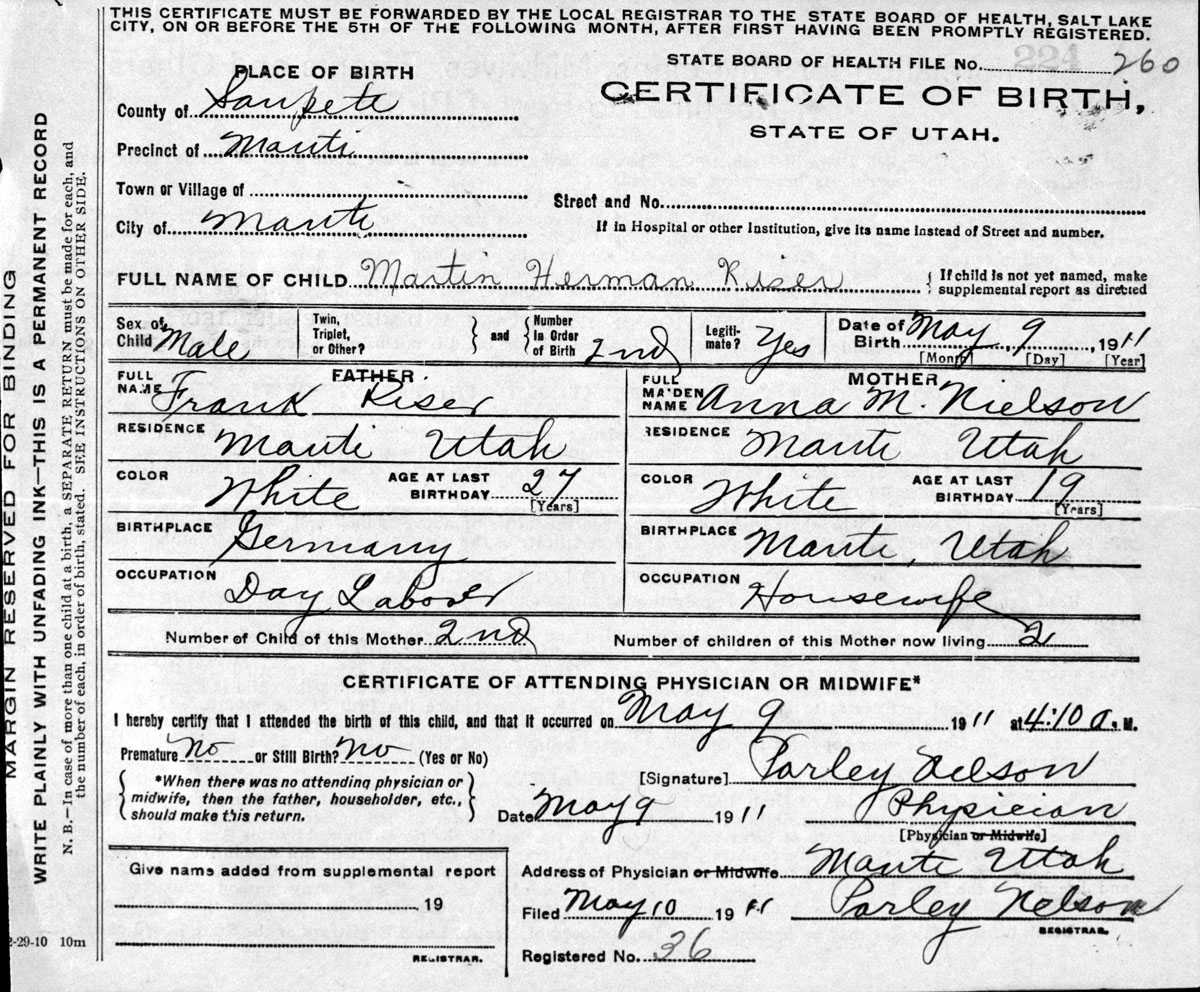 THIS CERTIFICATE MUST BE FORWARDED BY THE LOCAL REGISTRAR TO THE STATE BOARD OF HEALTH, SALT LAKE
CITY, ON OR BEFORE THE 5TH OF THE FOLLOWING MONTH, AFTER FIRST HAVING BEEN PROMPTLY REGISTERED.
224
STATE BOARD OF HEALTH FILE No. 260
PLACE OF BIRTH
CERTIFICATE OF BIRTH,
STATE OF UTAH.
County of Sanpete
Precinct of Manti
Town or Village of
Street and No.
City of Manti
If in Hospital or other Institution, give its name instead of Street and number.
FULL NAME OF CHILD Martin Herman Kiser { If child is not yet named, make
supplemental report as directed
Sex of Child Male
Twin, Triplet, or Other? } and { Number in Order of Birth 2nd
Legitimate? Yes
Date of Birth May 9, 1911
[Month] [Day] [Year]
FATHER
FULL NAME Frank Kiser
MOTHER
FULL MAIDEN NAME Anna M. Nielson
RESIDENCE Manti Utah
RESIDENCE Manti Utah
COLOR White AGE AT LAST BIRTHDAY 27 [Years]
COLOR White AGE AT LAST BIRTHDAY 19 [Years]
BIRTHPLACE Germany
BIRTHPLACE Manti, Utah
OCCUPATION Day Laborer
OCCUPATION Housewife
Number of Child of this Mother 2nd Number of children of this Mother now living 2
CERTIFICATE OF ATTENDING PHYSICIAN OR MIDWIFE*
I hereby certify that I attended the birth of this child, and that it occurred on May 9 1911 at 4:10 a. M.
Premature No or Still Birth? No (Yes or No)
{ *When there was no attending physician or
midwife, then the father, householder, etc.,
should make this return. }
[Signature] Parley Nelson
Date May 9 1911 Physician
[Physician or Midwife]
Give name added from supplemental report
19
REGISTRAR.
Address of Physician or Midwife Manti Utah
Filed May 10 1911 Parley Nelson
REGISTRAR.
Registered No. 36
2-29-10 10m
MARGIN RESERVED FOR BINDING
WRITE PLAINLY WITH UNFADING INK—THIS IS A PERMANENT RECORD
N. B.—In case of more than one child at a birth, a SEPARATE RETURN must be made for each, and
the number of each, in order of birth, stated. SEE INSTRUCTIONS ON OTHER SIDE.